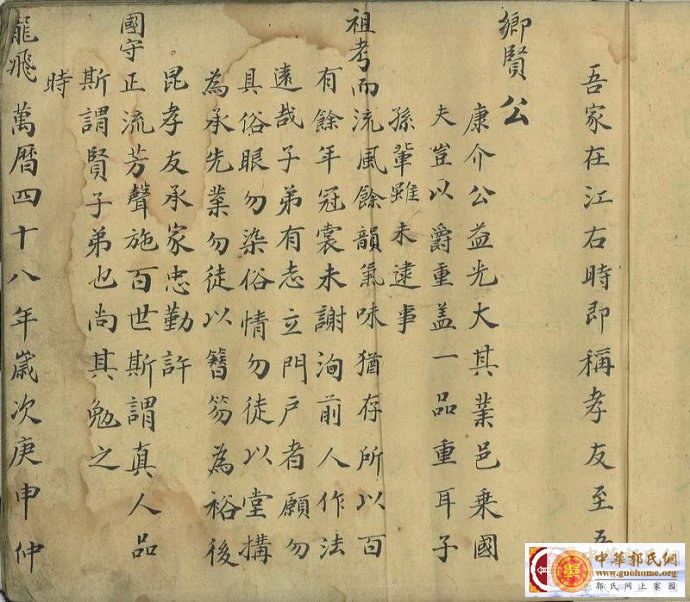 吾家在江右時即稱孝友至吾
鄉賢公
康介公益光大其業邑乘國
夫豈以爵重盖一品重耳子
孫輩雖未逮事
祖考而流風餘韻氣味猶存所以百
有餘年冠裳未謝洵前人作法
遠哉子弟有志立門戶者願勿
具俗眼勿染俗情勿徒以堂搆
為承先業勿徒以簪笏為裕後
昆孝友承家忠勤許
國守正流芳聲施百世斯謂真人品
斯謂賢子弟也尚其勉之
時
龍飛萬曆四十八年歲次庚申仲
中華郭氏網
www.guohome.org
郭氏網上家園